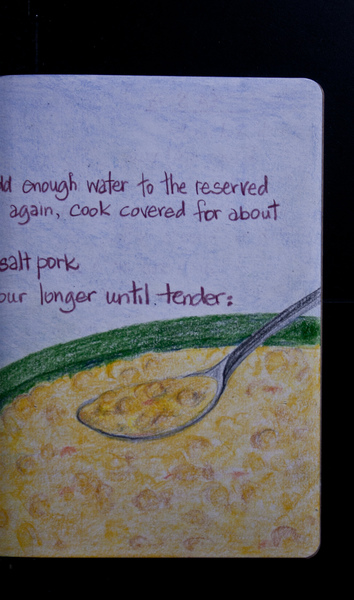 enough water to the reserved
again, cook covered for about
salt pork
longer until tender: